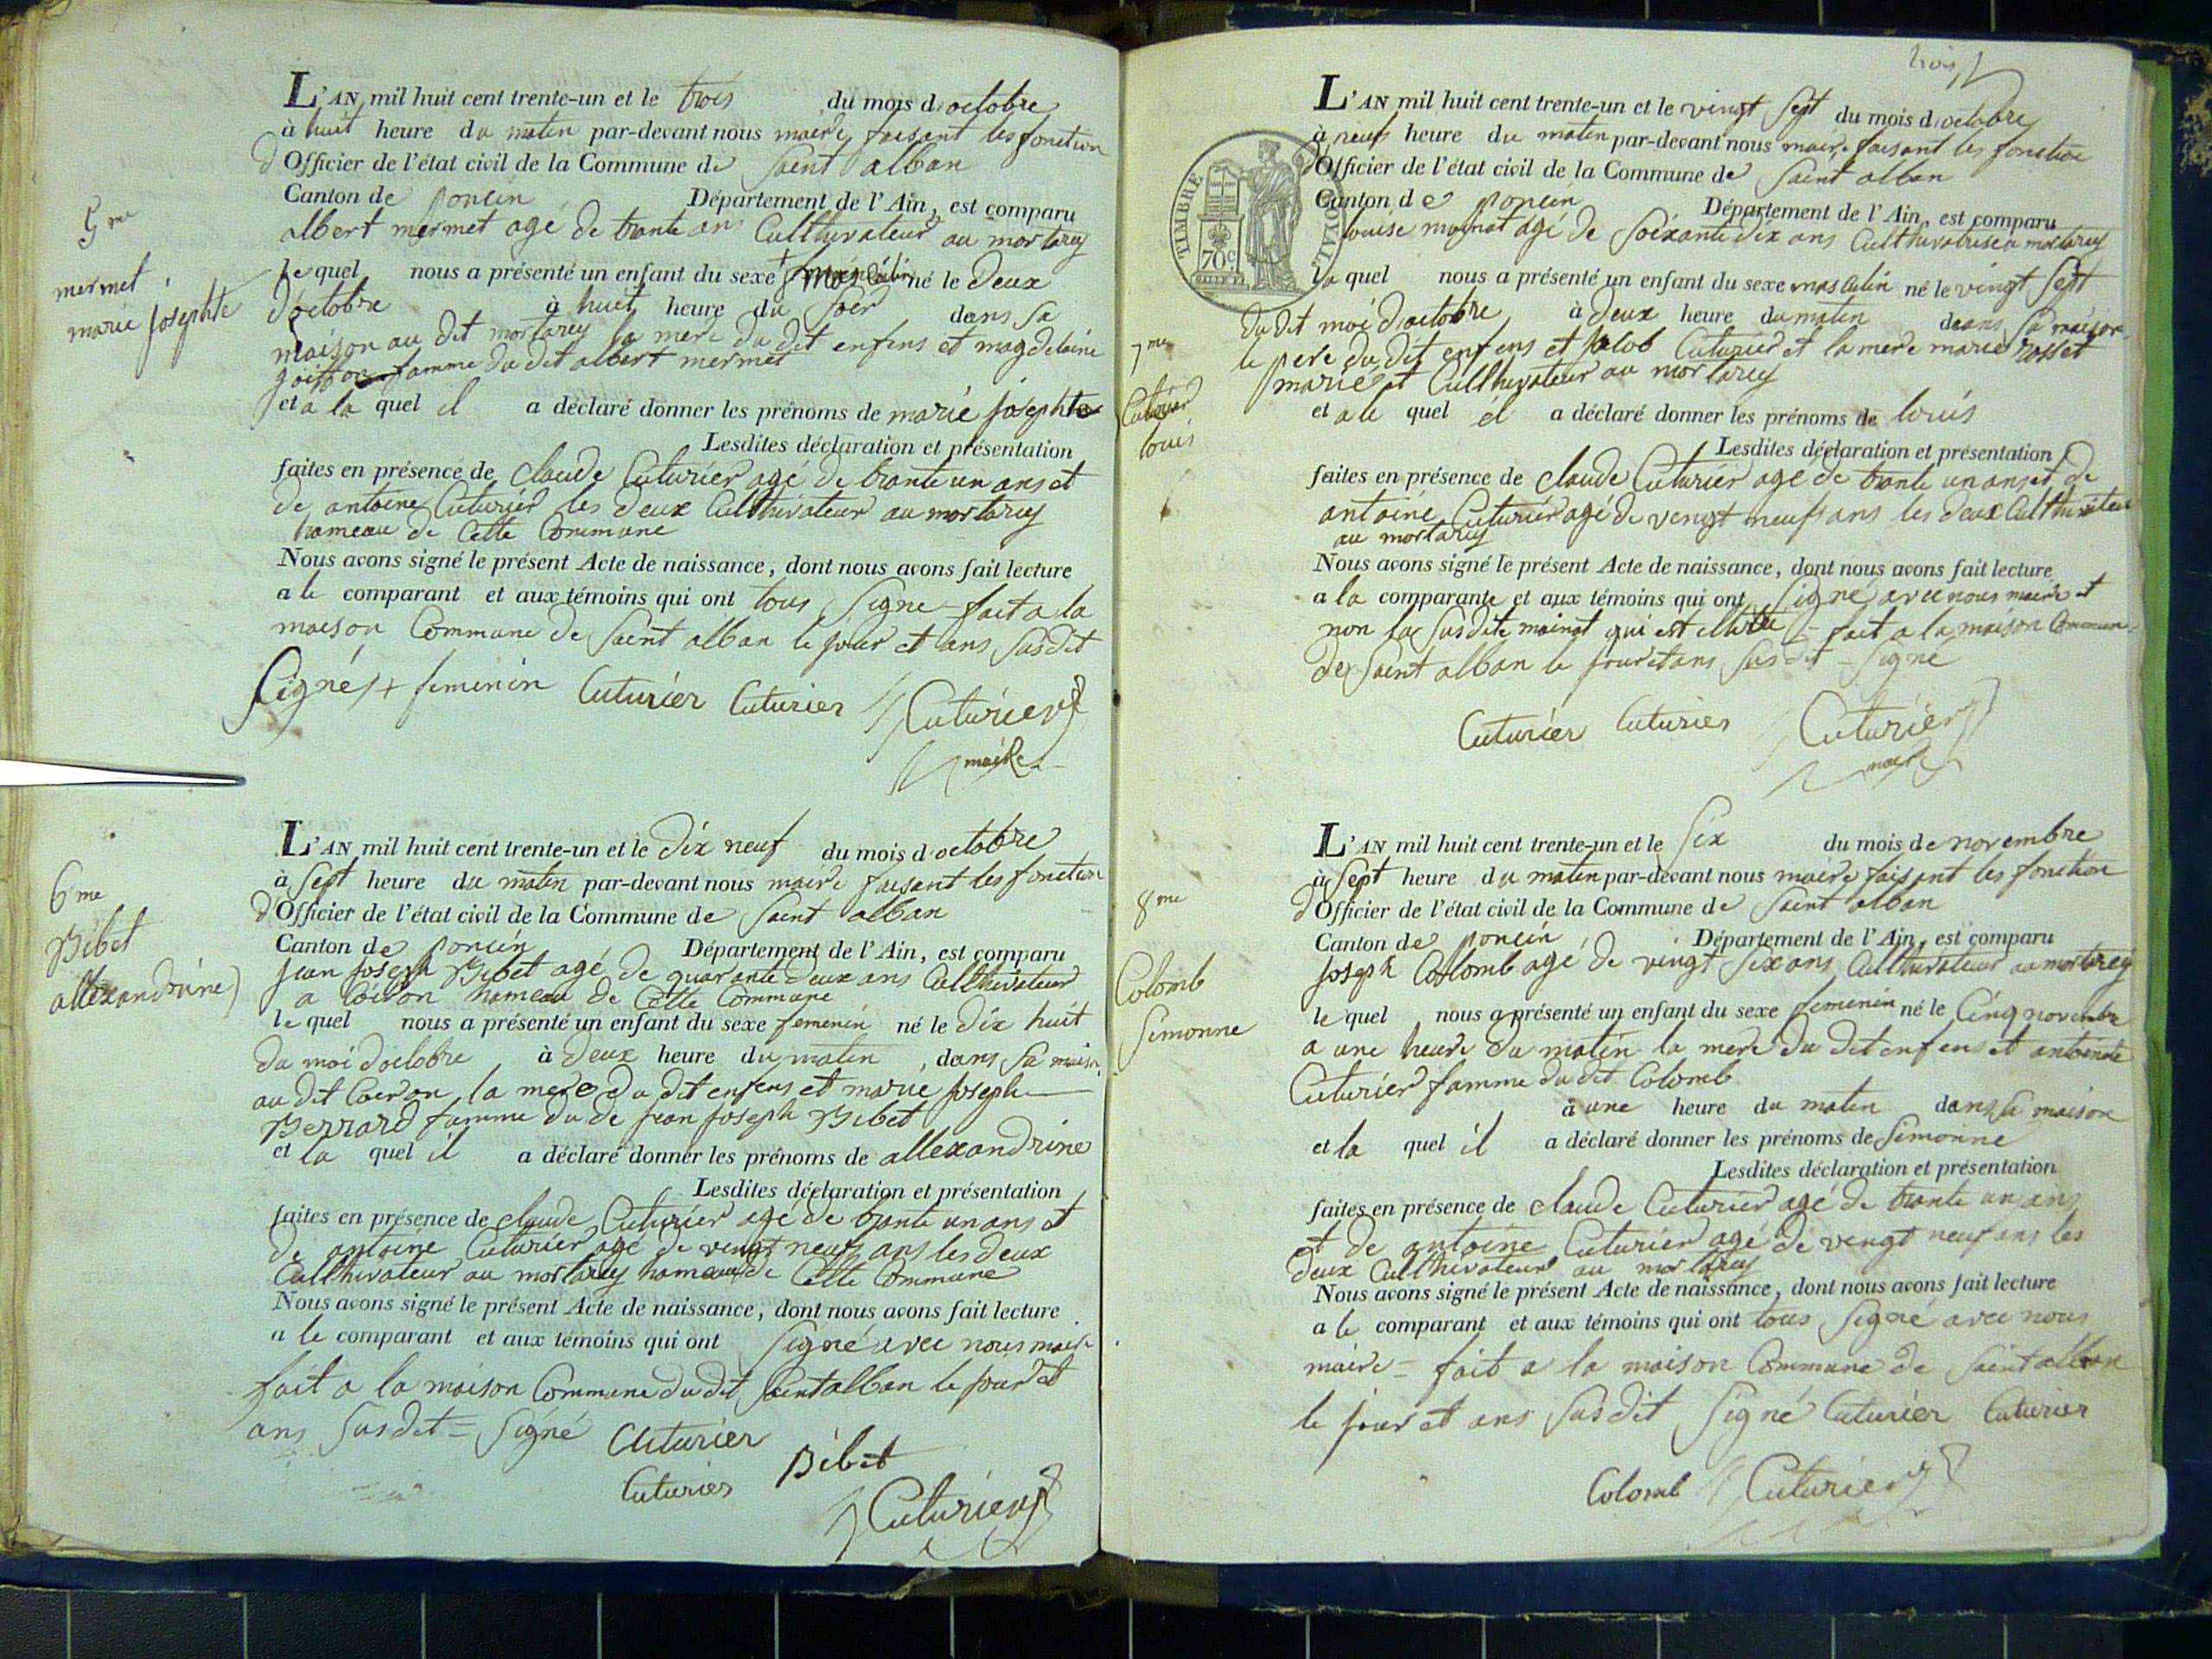 5me
mermet
marie Josephte
L'AN mil huit cent trente-un et le trois du mois d'octobre
à huit heure du matin par-devant nous maire faisant les fonction
d'Officier de l'état civil de la Commune de Saint alban
Canton de poncin Département de l'Ain, est comparu
albert mermet agé de trante ans Culthivateur au mortarey
le quel nous a présenté un enfant du sexe né le deux
d'octobre à huit heure du soer dans sa
maison au dit mortarey la mere du dit enfens et magdelaine
goiffon famme du dit albert mermet
et a la quel il a déclaré donner les prénoms de marie josephte
Lesdites déclaration et présentation
faites en présence de claude Cuturier agé de trante un ans et
de antoine Cuturier les deux Culthivateur au mortarey
hameau de Cette Commune
Nous avons signé le présent Acte de naissance, dont nous avons fait lecture
a le comparant et aux témoins qui ont tous Signe = fait a la
maison Commune de Saint alban le jour et ans Susdit
Signé + femenin Cuturier Cuturier Cuturier
maire
6me
Bibet
allexandrine
L'AN mil huit cent trente-un et le dix neuf du mois d'octobre
à Sept heure du matin par-devant nous maire faisant les fonction
d'Officier de l'état civil de la Commune de Saint alban
Canton de poncin Département de l'Ain, est comparu
jean joseph Bibet agé de quarante deux ans Culthivateur
a Coiron hameau de Cette Commune
le quel nous a présenté un enfant du sexe femenin né le dix huit
du moi d'octobre à deux heure du matin, dans sa maison
au dit Coiron la mere du dit enfens et marie joseph
Berrard famme du de jean joseph Bibet
et la quel il a déclaré donner les prénoms de allexandrine
Lesdites déclaration et présentation
faites en présence de claude Cuturier agé de trante un ans et
de antoine Cuturier agé de vengt neuf ans les deux
Culthivateur au mortarey hameau de Cette Commune
Nous avons signé le présent Acte de naissance, dont nous avons fait lecture
a le comparant et aux témoins qui ont Signé avec nous maire
fait a la maison Commune du dit Saint alban le jour et
ans Susdit = Signé Cuturier
Bibet
Cuturier
Cuturier
trois
TIMBRE ROYAL
70c
7me
Cuturier
louis
L'AN mil huit cent trente-un et le vingt Sept du mois d'octobre
à neuf heure du matin par-devant nous maire faisant les fonction
d'Officier de l'état civil de la Commune de Saint alban
Canton de poncin Département de l'Ain, est comparu
louise moinat agé de Soixante dix ans Culthivatrise a mortarey
la quel nous a présenté un enfant du sexe masculin né le vingt Sept
du dit moi d'octobre à deux heure du matin dans sa maison
le pere du dit enfens et Jacob Cuturier et la mere marie rosset
marié et Culthivateur au mortarey
et a le quel el a déclaré donner les prénoms de louis
Lesdites déclaration et présentation
faites en présence de claude Cuturier agé de trante un ans et de
antoine Cuturier agé de vengt neuf ans les deux Culthivateur
au mortarey
Nous avons signé le présent Acte de naissance, dont nous avons fait lecture
a la comparante et aux témoins qui ont Signé avec nous maire et
non la Susdite moinat qui est = fait a la maison Commune
de Saint alban le jour et ans Susdit = Signé
Cuturier Cuturier Cuturier
maire
8me
Colomb
Simonne
L'AN mil huit cent trente-un et le Six du mois de novembre
à Sept heure du matin par-devant nous maire faisant les fonction
d'Officier de l'état civil de la Commune de Saint alban
Canton de poncin Département de l'Ain, est comparu
joseph Colomb agé de vingt Six ans Culthivateur au mortarey
le quel nous a présenté un enfant du sexe femenin né le Cinq novembre
a une heure du matin la mere du dit enfens et
Cuturier famme du dit Colomb
à une heure du matin dans sa maison
et la quel il a déclaré donner les prénoms de Simonne
Lesdites déclaration et présentation
faites en présence de claude Cuturier agé de trante un ans
et de antoine Cuturier agé de vengt neuf ans les
deux Culthivateur au mortarey
Nous avons signé le présent Acte de naissance, dont nous avons fait lecture
a le comparant et aux témoins qui ont tous Signé avec nous
maire = fait a la maison Commune de Saint alban
le jour et ans Susdit Signé Cuturier Cuturier
Colomb Cuturier